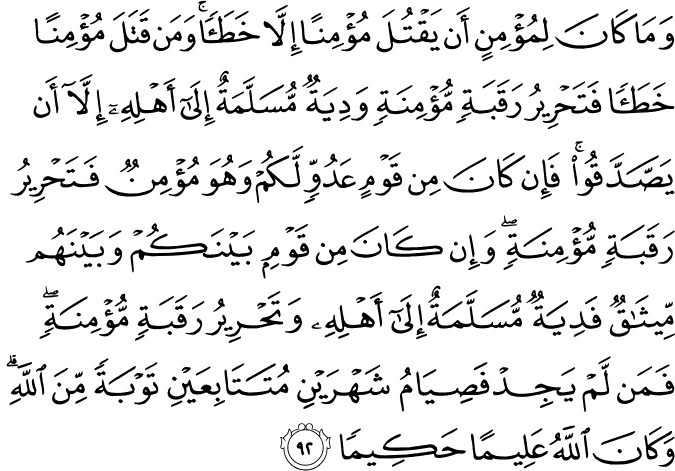 وَمَا كَانَ لِمُؤْمِنٍ أَن يَقْتُلَ مُؤْمِنًا إِلَّا خَطَـًٔا ۚ وَمَن قَتَلَ مُؤْمِنًا
خَطَـًٔا فَتَحْرِيرُ رَقَبَةٍ مُّؤْمِنَةٍ وَدِيَةٌ مُّسَلَّمَةٌ إِلَىٰٓ أَهْلِهِۦٓ إِلَّآ أَن
يَصَّدَّقُوا۟ ۚ فَإِن كَانَ مِن قَوْمٍ عَدُوٍّ لَّكُمْ وَهُوَ مُؤْمِنٌ فَتَحْرِيرُ
رَقَبَةٍ مُّؤْمِنَةٍ ۖ وَإِن كَانَ مِن قَوْمٍۭ بَيْنَكُمْ وَبَيْنَهُم
مِّيثَـٰقٌ فَدِيَةٌ مُّسَلَّمَةٌ إِلَىٰٓ أَهْلِهِۦ وَتَحْرِيرُ رَقَبَةٍ مُّؤْمِنَةٍ ۖ
فَمَن لَّمْ يَجِدْ فَصِيَامُ شَهْرَيْنِ مُتَتَابِعَيْنِ تَوْبَةً مِّنَ ٱللَّهِ ۗ
وَكَانَ ٱللَّهُ عَلِيمًا حَكِيمًا ٩٢